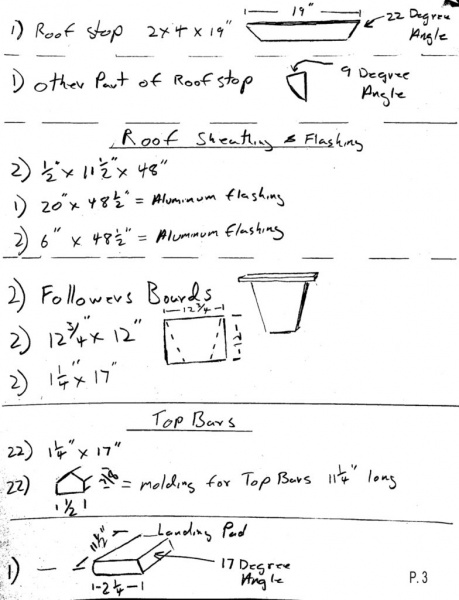 1) Roof stop 2x4x19" 19" 22 Degree Angle
1) other Part of Roof stop 9 Degree Angle
Roof Sheathing & Flashing
2) ½" x 11½" x 48"
1) 20" x 48½" = Aluminum flashing
2) 6" x 48½" = Aluminum flashing
2) Followers Boards
2) 12¾" x 12" 12¾
2) 1¼" x 17"
Top Bars
22) 1¼" x 17"
22) = molding for Top Bars 11¼" long
1½
11½" Landing Pad
1) 17 Degree Angle
2¼
P.3